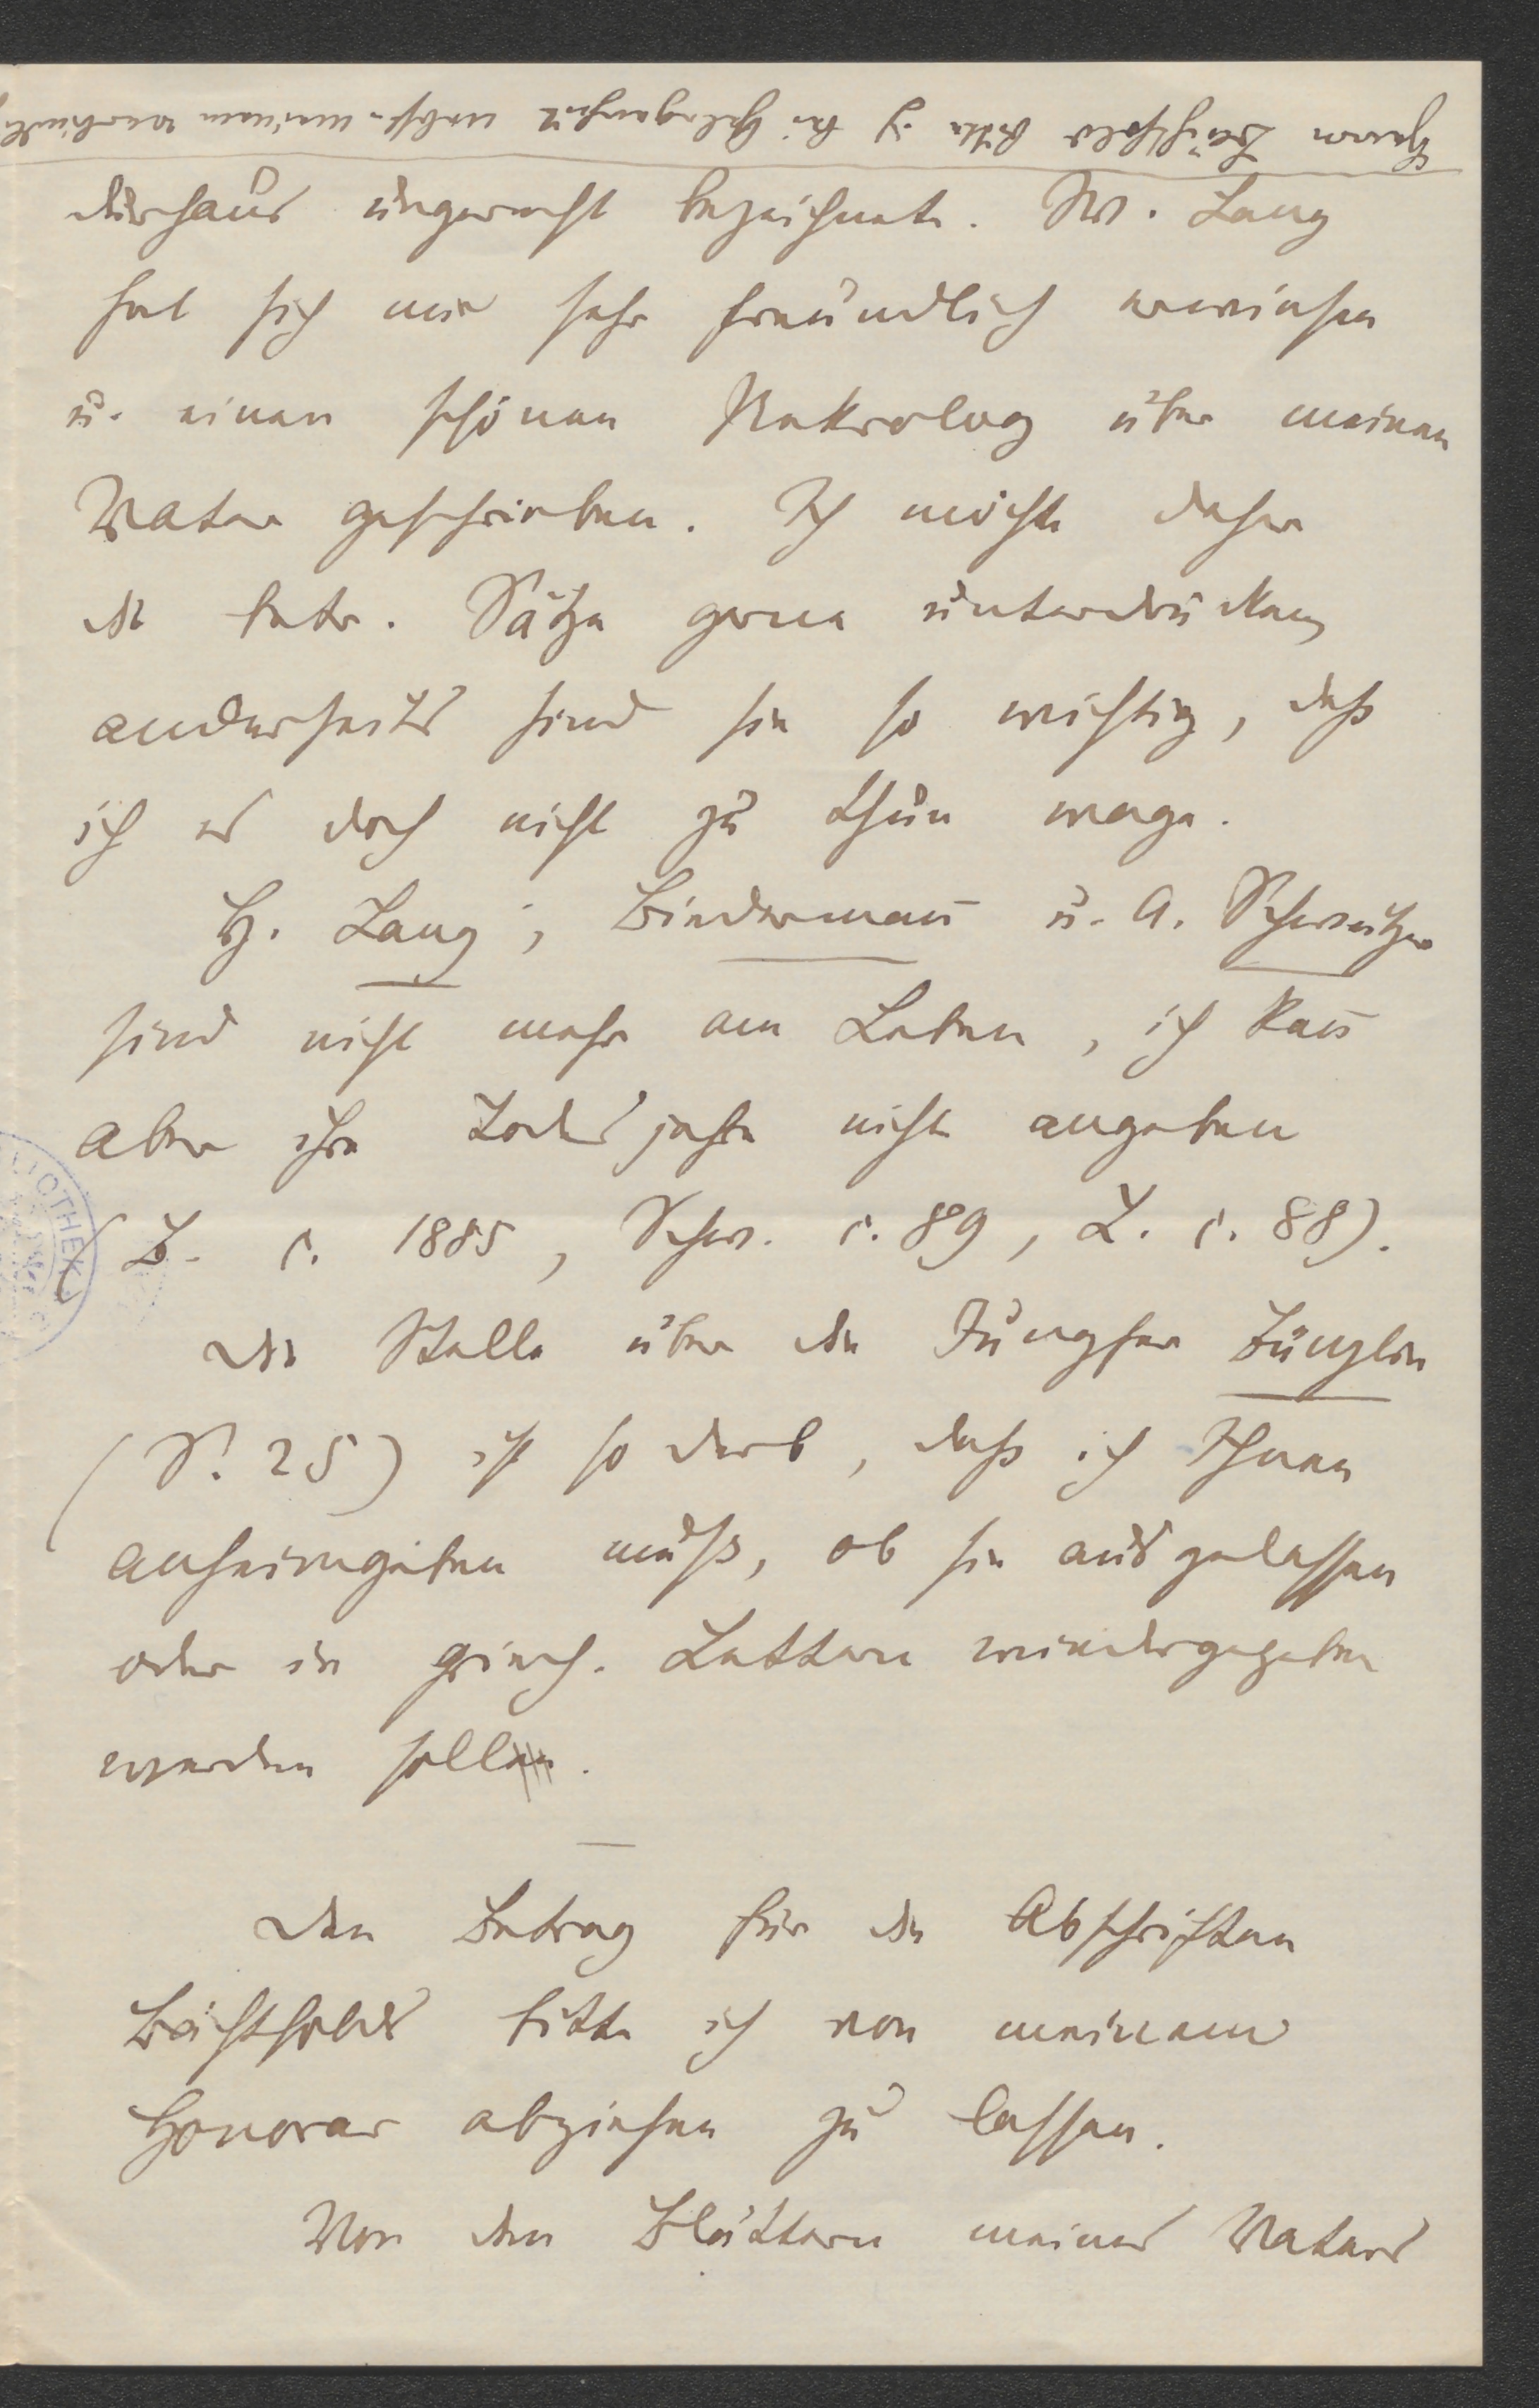 Herrn Bächtold bitte ich bei Gelegenheit nebst meinem verbindl.
durchaus ungerecht bezeichnete. W. Lang
hat sich mir sehr freundlich erwiesen
u. einen schönen Nekrolog über meinen
Vater geschrieben. Ich möchte daher
die betr. Sätze gerne unterdrücken,
anderseits sind sie so wichtig, daß
ich es doch nicht zu thun wage.
H. Lang, Biedermañ u. A. Schweitzer
sind nicht mehr am Leben, ich kañ
aber ihre Todesjahre nicht angeben
(B. c. 1885, Schw. c. 89, L. c. 88).
Die Stelle über die Jungfer
(S. 25) ist so derb, daß ich Ihnen
anheimgeben muß, ob sie ausgelassen
oder in griech. Lettern wiedergegeben
werden soll.
Den Betrag für die Abschriften
Bächtholds bitte ich von meinem
Honorar abziehen zu lassen.
Von den Blättern meines Vaters